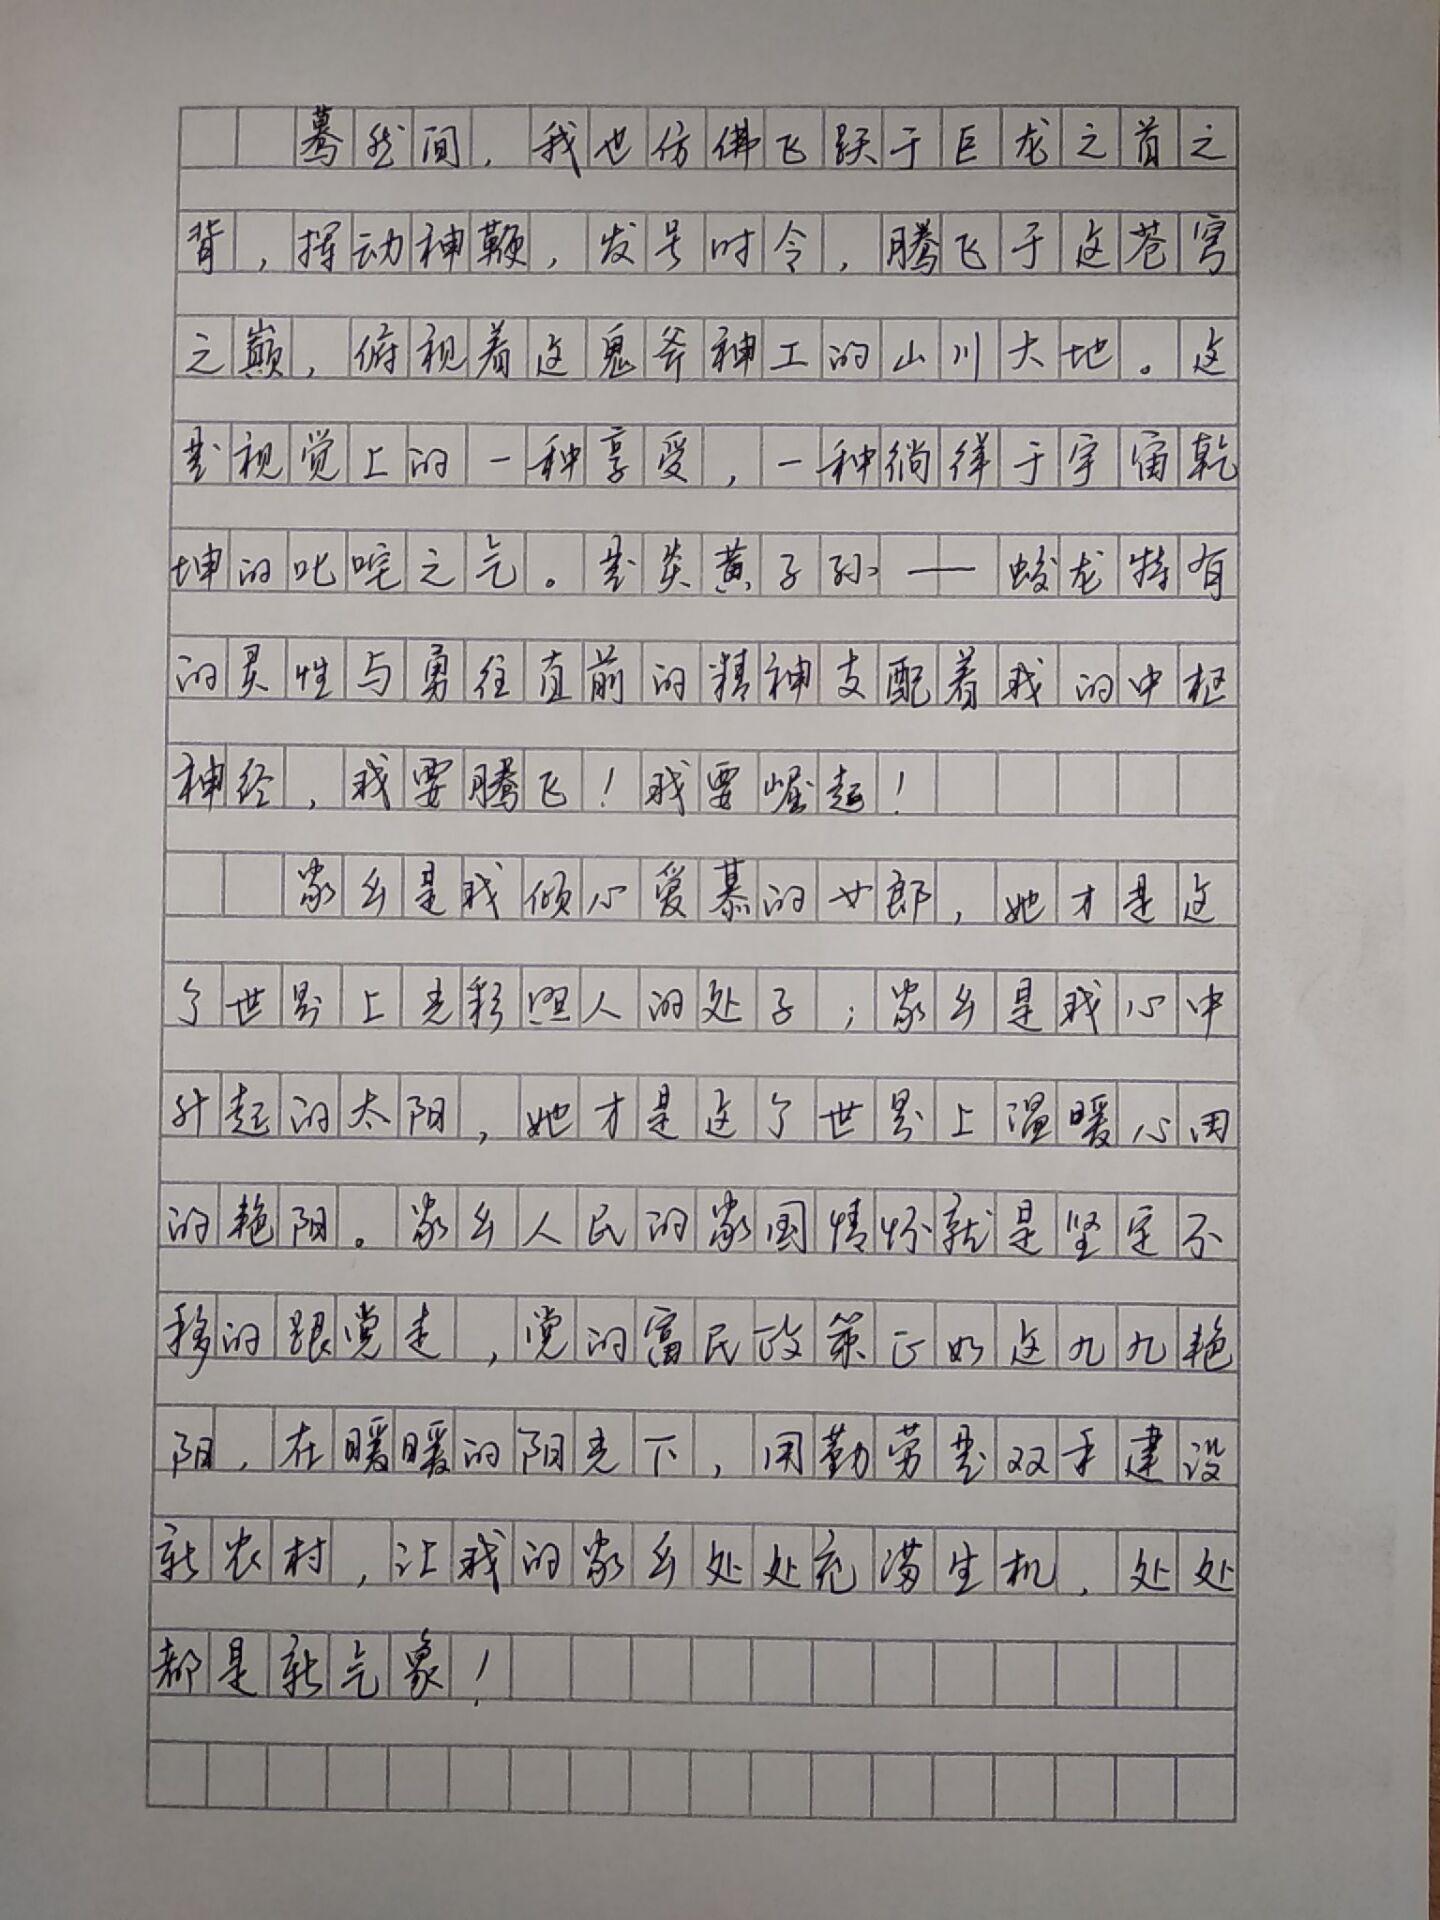 蓦然间，我也仿佛飞跃于巨龙之首之
背，挥动神鞭，发号时令，腾飞于这苍穹
之巅，俯视着这鬼斧神工的山川大地。这
是视觉上的一种享受，一种徜徉于宇宙乾
坤的叱咤之气。是炎黄子孙——蛟龙特有
的灵性与勇往直前的精神支配着我的中枢
神经，我要腾飞！我要崛起！
家乡是我倾心爱慕的女郎，她才是这
个世界上光彩照人的处子；家乡是我心中
升起的太阳，她才是这个世界上温暖心田
的艳阳。家乡人民的家国情怀就是坚定不
移的跟党走，党的富民政策正如这九九艳
阳，在暖暖的阳光下，用勤劳是双手建设
新农村，让我的家乡处处充满生机，处处
都是新气象！